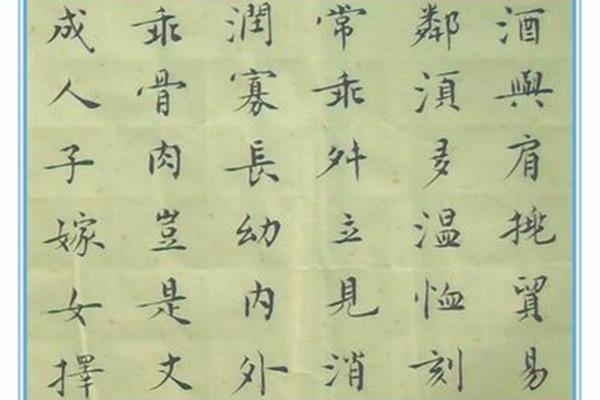 酒與肩挑貿易
鄰湏多温恤刻
常乖舛立見消
潤寡長幼内外
乖骨肉豈是丈
成人子嫁女擇